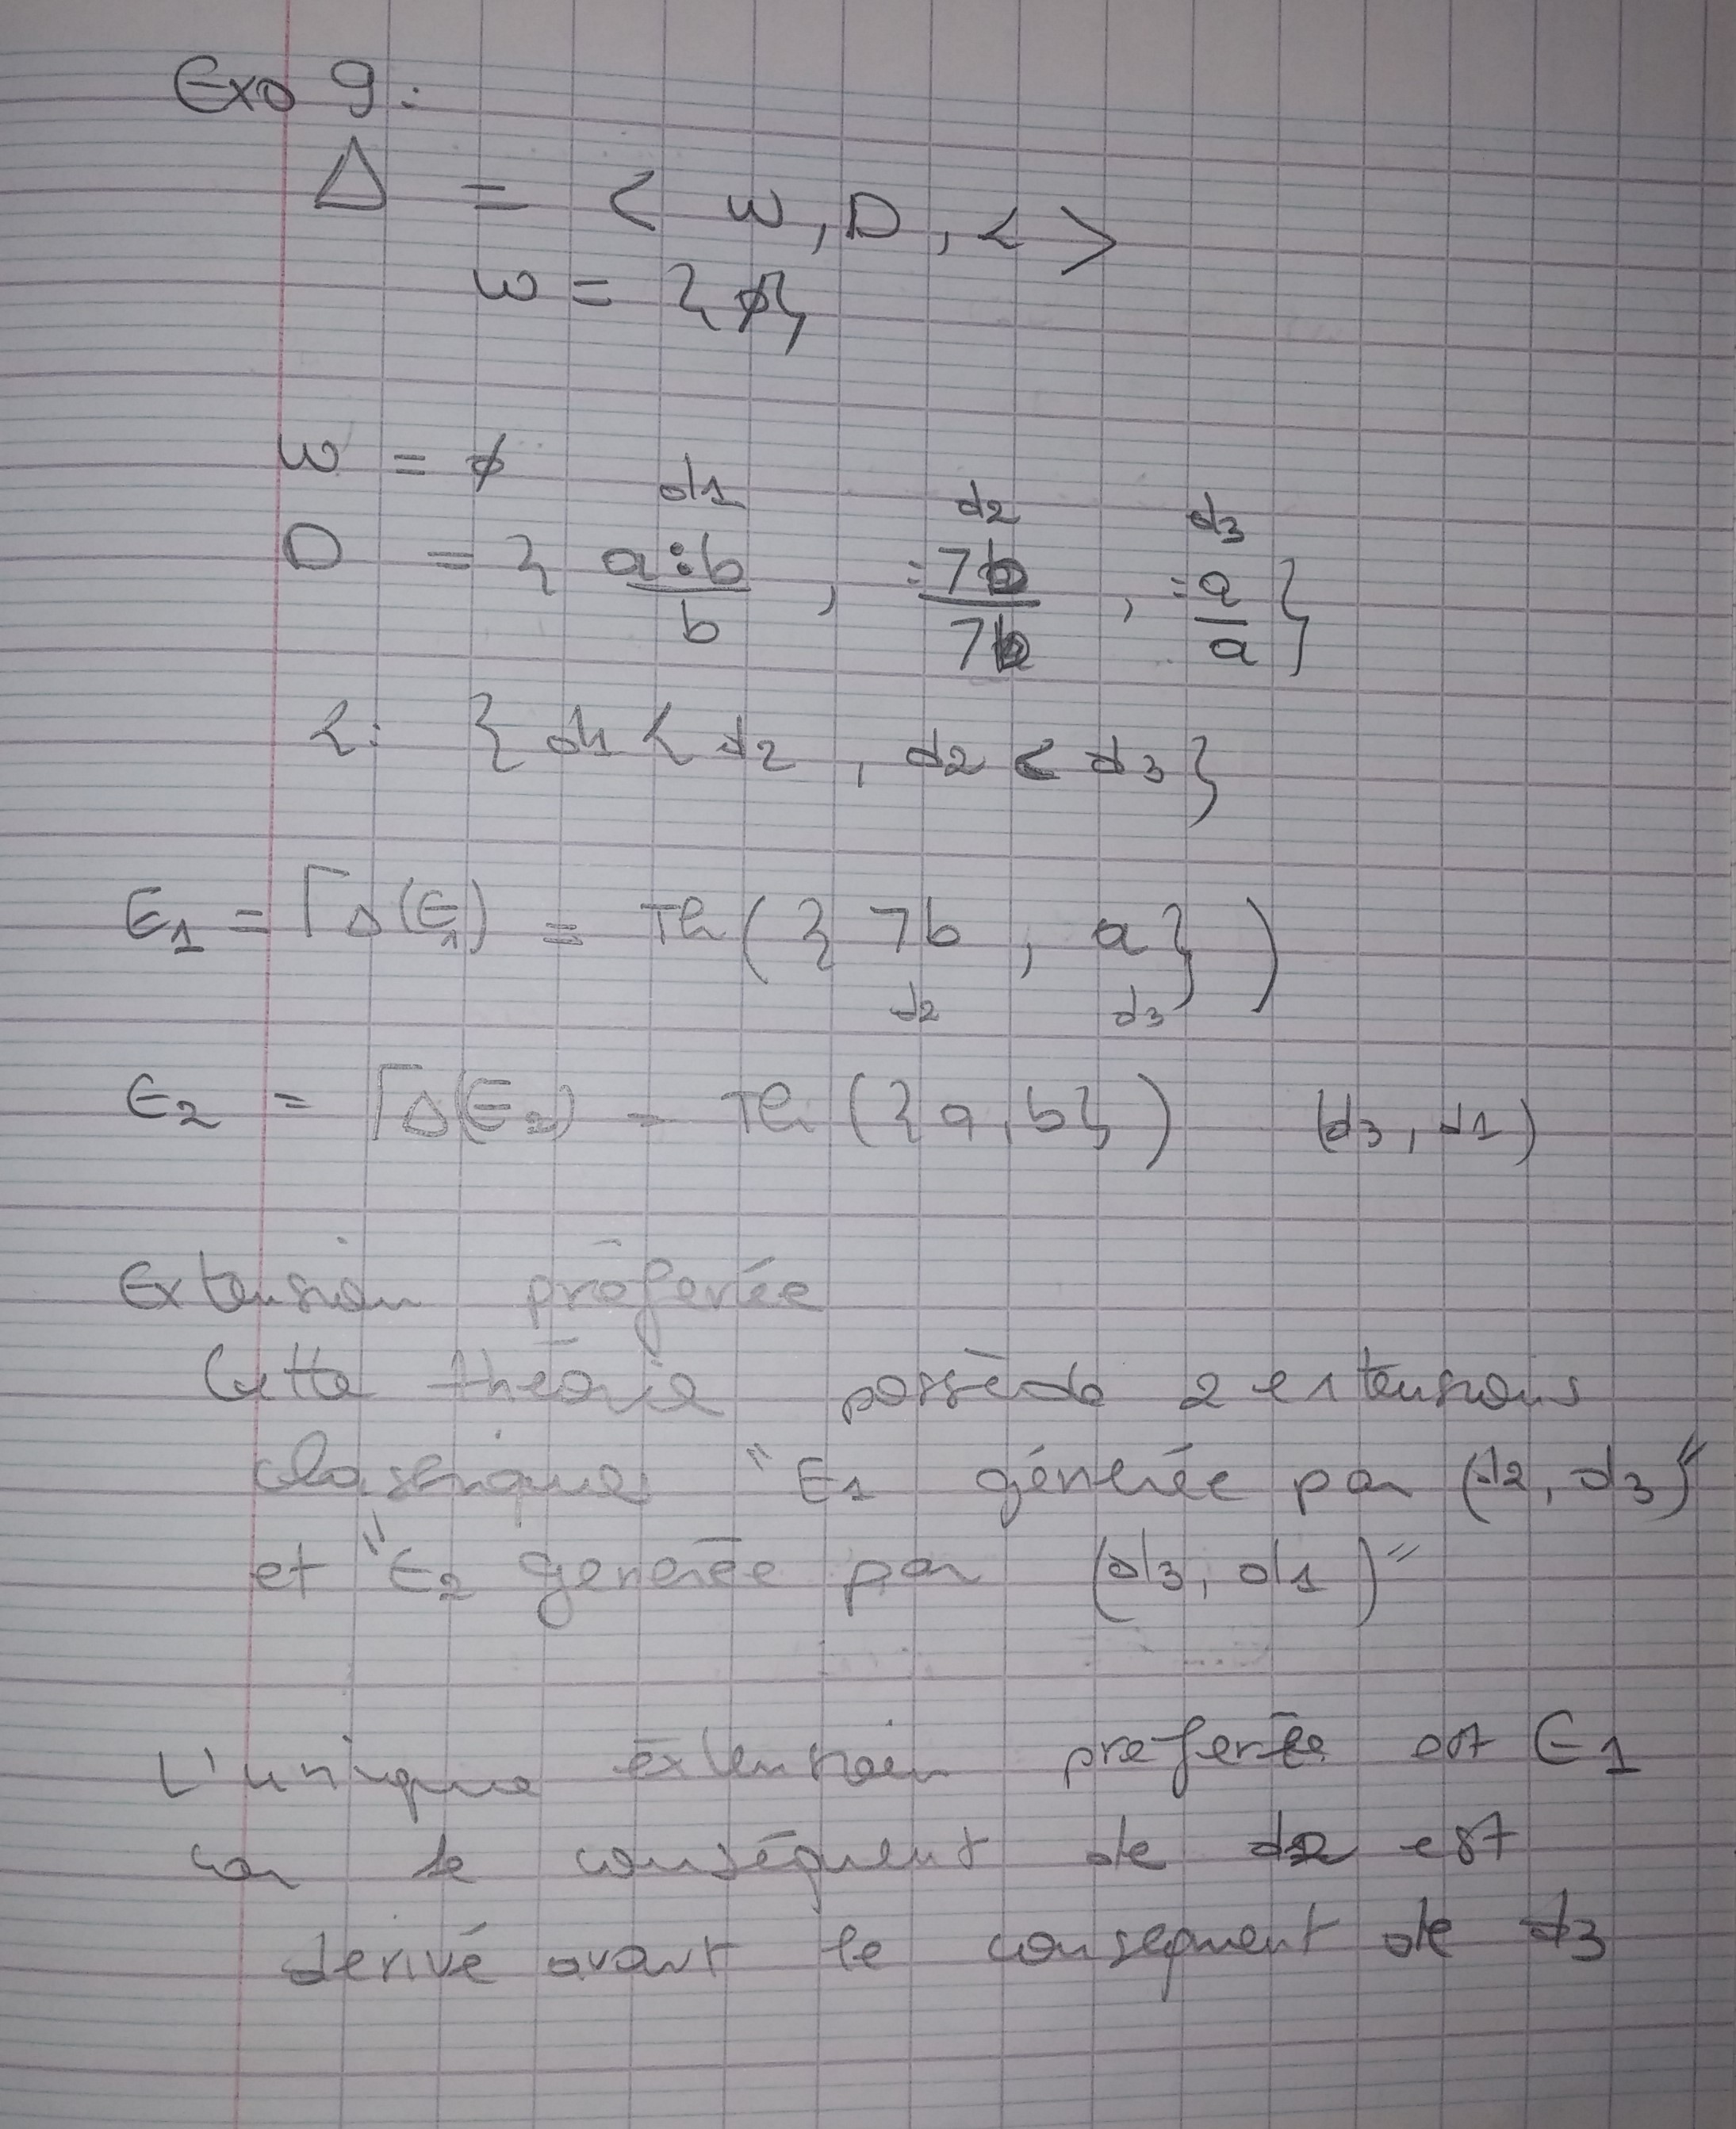 Exo 9 :
Δ = < w , D , < >
w = { ø }
w = ø
d1 d2 d3
D = { a : b / b , : 7b / 7b , : a / a }
< : { d1 < d2 , d2 < d3 }
E1 = ΓΔ(E1) = Th ( { 7b , a } )
d2 d3
E2 = ΓΔ(E2) = Th ( { a , b } ) (d3 , d1)
Extension préferée
Cette théorie possède 2 extensions
classiques "E1 générée par (d2, d3)"
et "E2 generée par (d3, d1)"
L'unique extension preferée est E1
car le conséquent de d2 est
derivé avant le consequent de d3